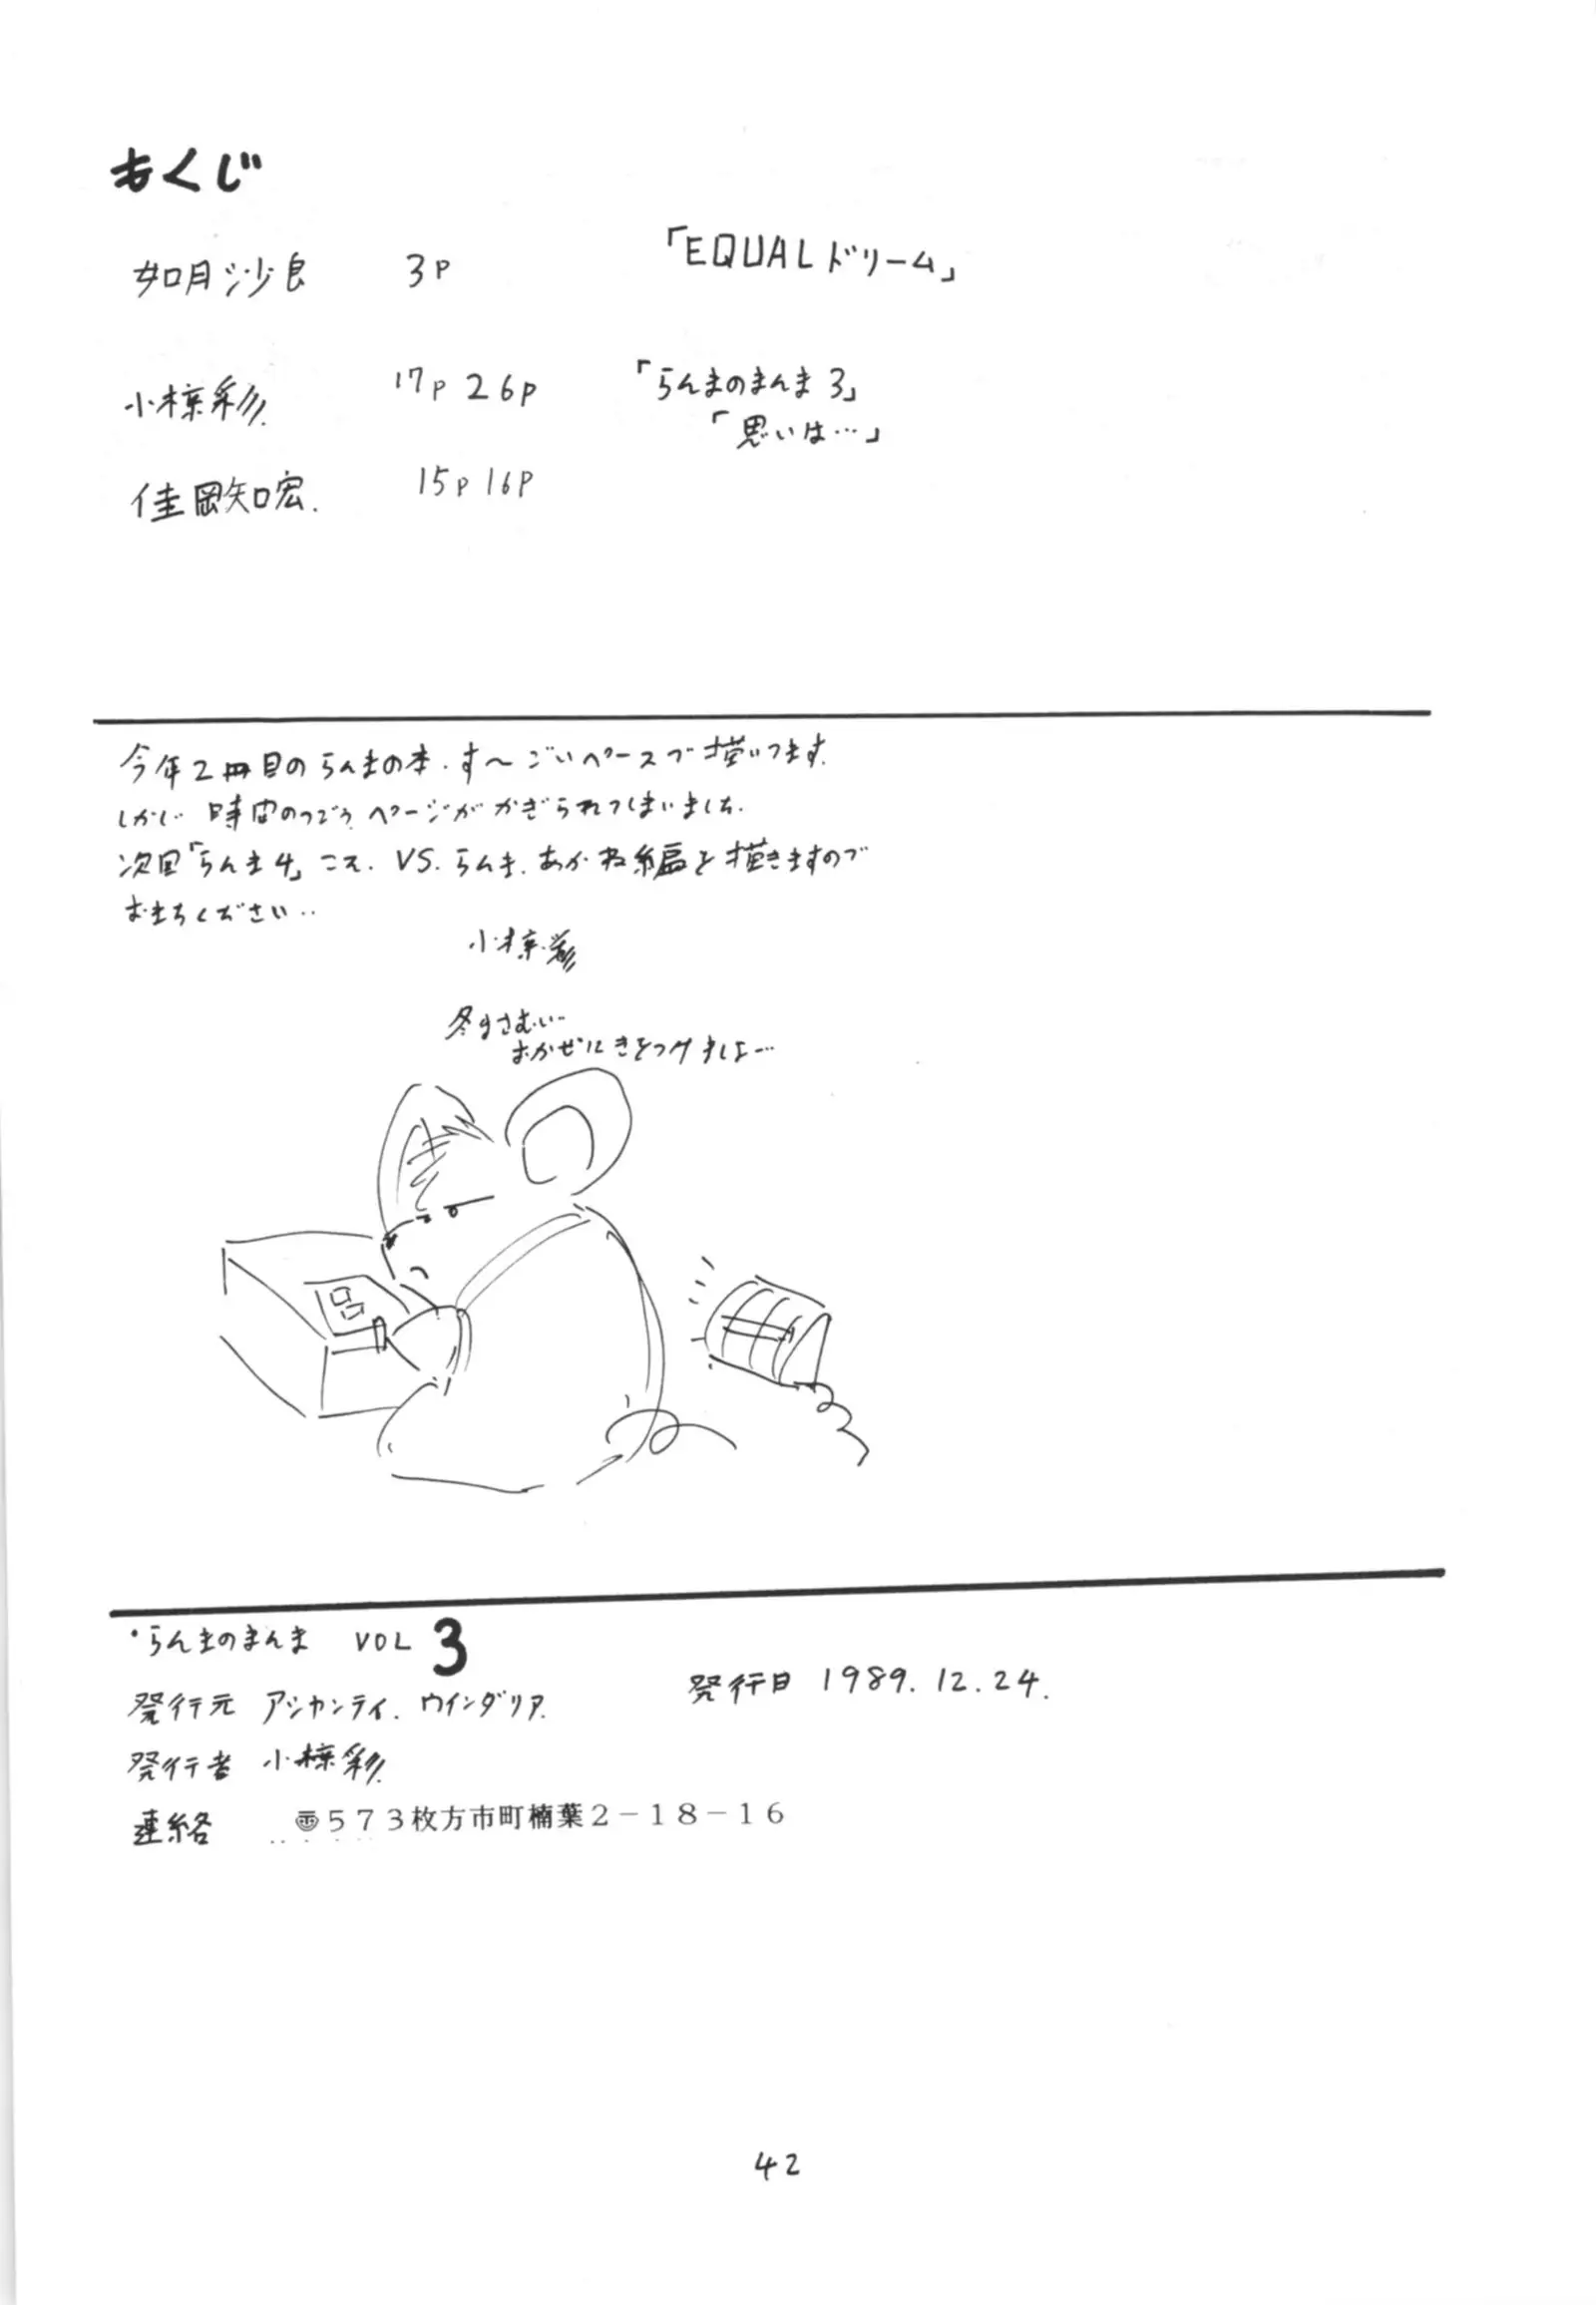 もくじ
如月沙良 3P 「EQUALドリーム」
小椋彩. 17P 26P 「らんまのまんま3」
「思いは…」
佳岡知宏. 15P 16P
今年2冊目のらんまの本.す〜ごいペースで描いてます.
しかし 時間のつごう ページがかぎられてしまいました.
次回「らんま4」こそ. VS. らんま.あかね編を描きますので
おまちください‥
小椋彩
冬はさむい…
おかぜにきをつけましょ…
・らんまのまんま VOL 3
発行元 アシカンティ. ウインダリア. 発行日 1989.12.24.
発行者 小椋彩.
連絡 〠573枚方市町楠葉2－18－16
42